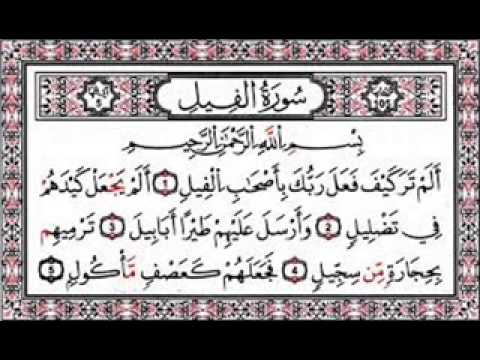 سُورَةُ الفِيلِ
بِسْمِ اللَّهِ الرَّحْمَٰنِ الرَّحِيمِ
أَلَمْ تَرَ كَيْفَ فَعَلَ رَبُّكَ بِأَصْحَابِ الْفِيلِ ١ أَلَمْ يَجْعَلْ كَيْدَهُمْ
فِي تَضْلِيلٍ 2 وَأَرْسَلَ عَلَيْهِمْ طَيْرًا أَبَابِيلَ 3 تَرْمِيهِم
بِحِجَارَةٍ مِّن سِجِّيلٍ 4 فَجَعَلَهُمْ كَعَصْفٍ مَّأْكُولٍ 5